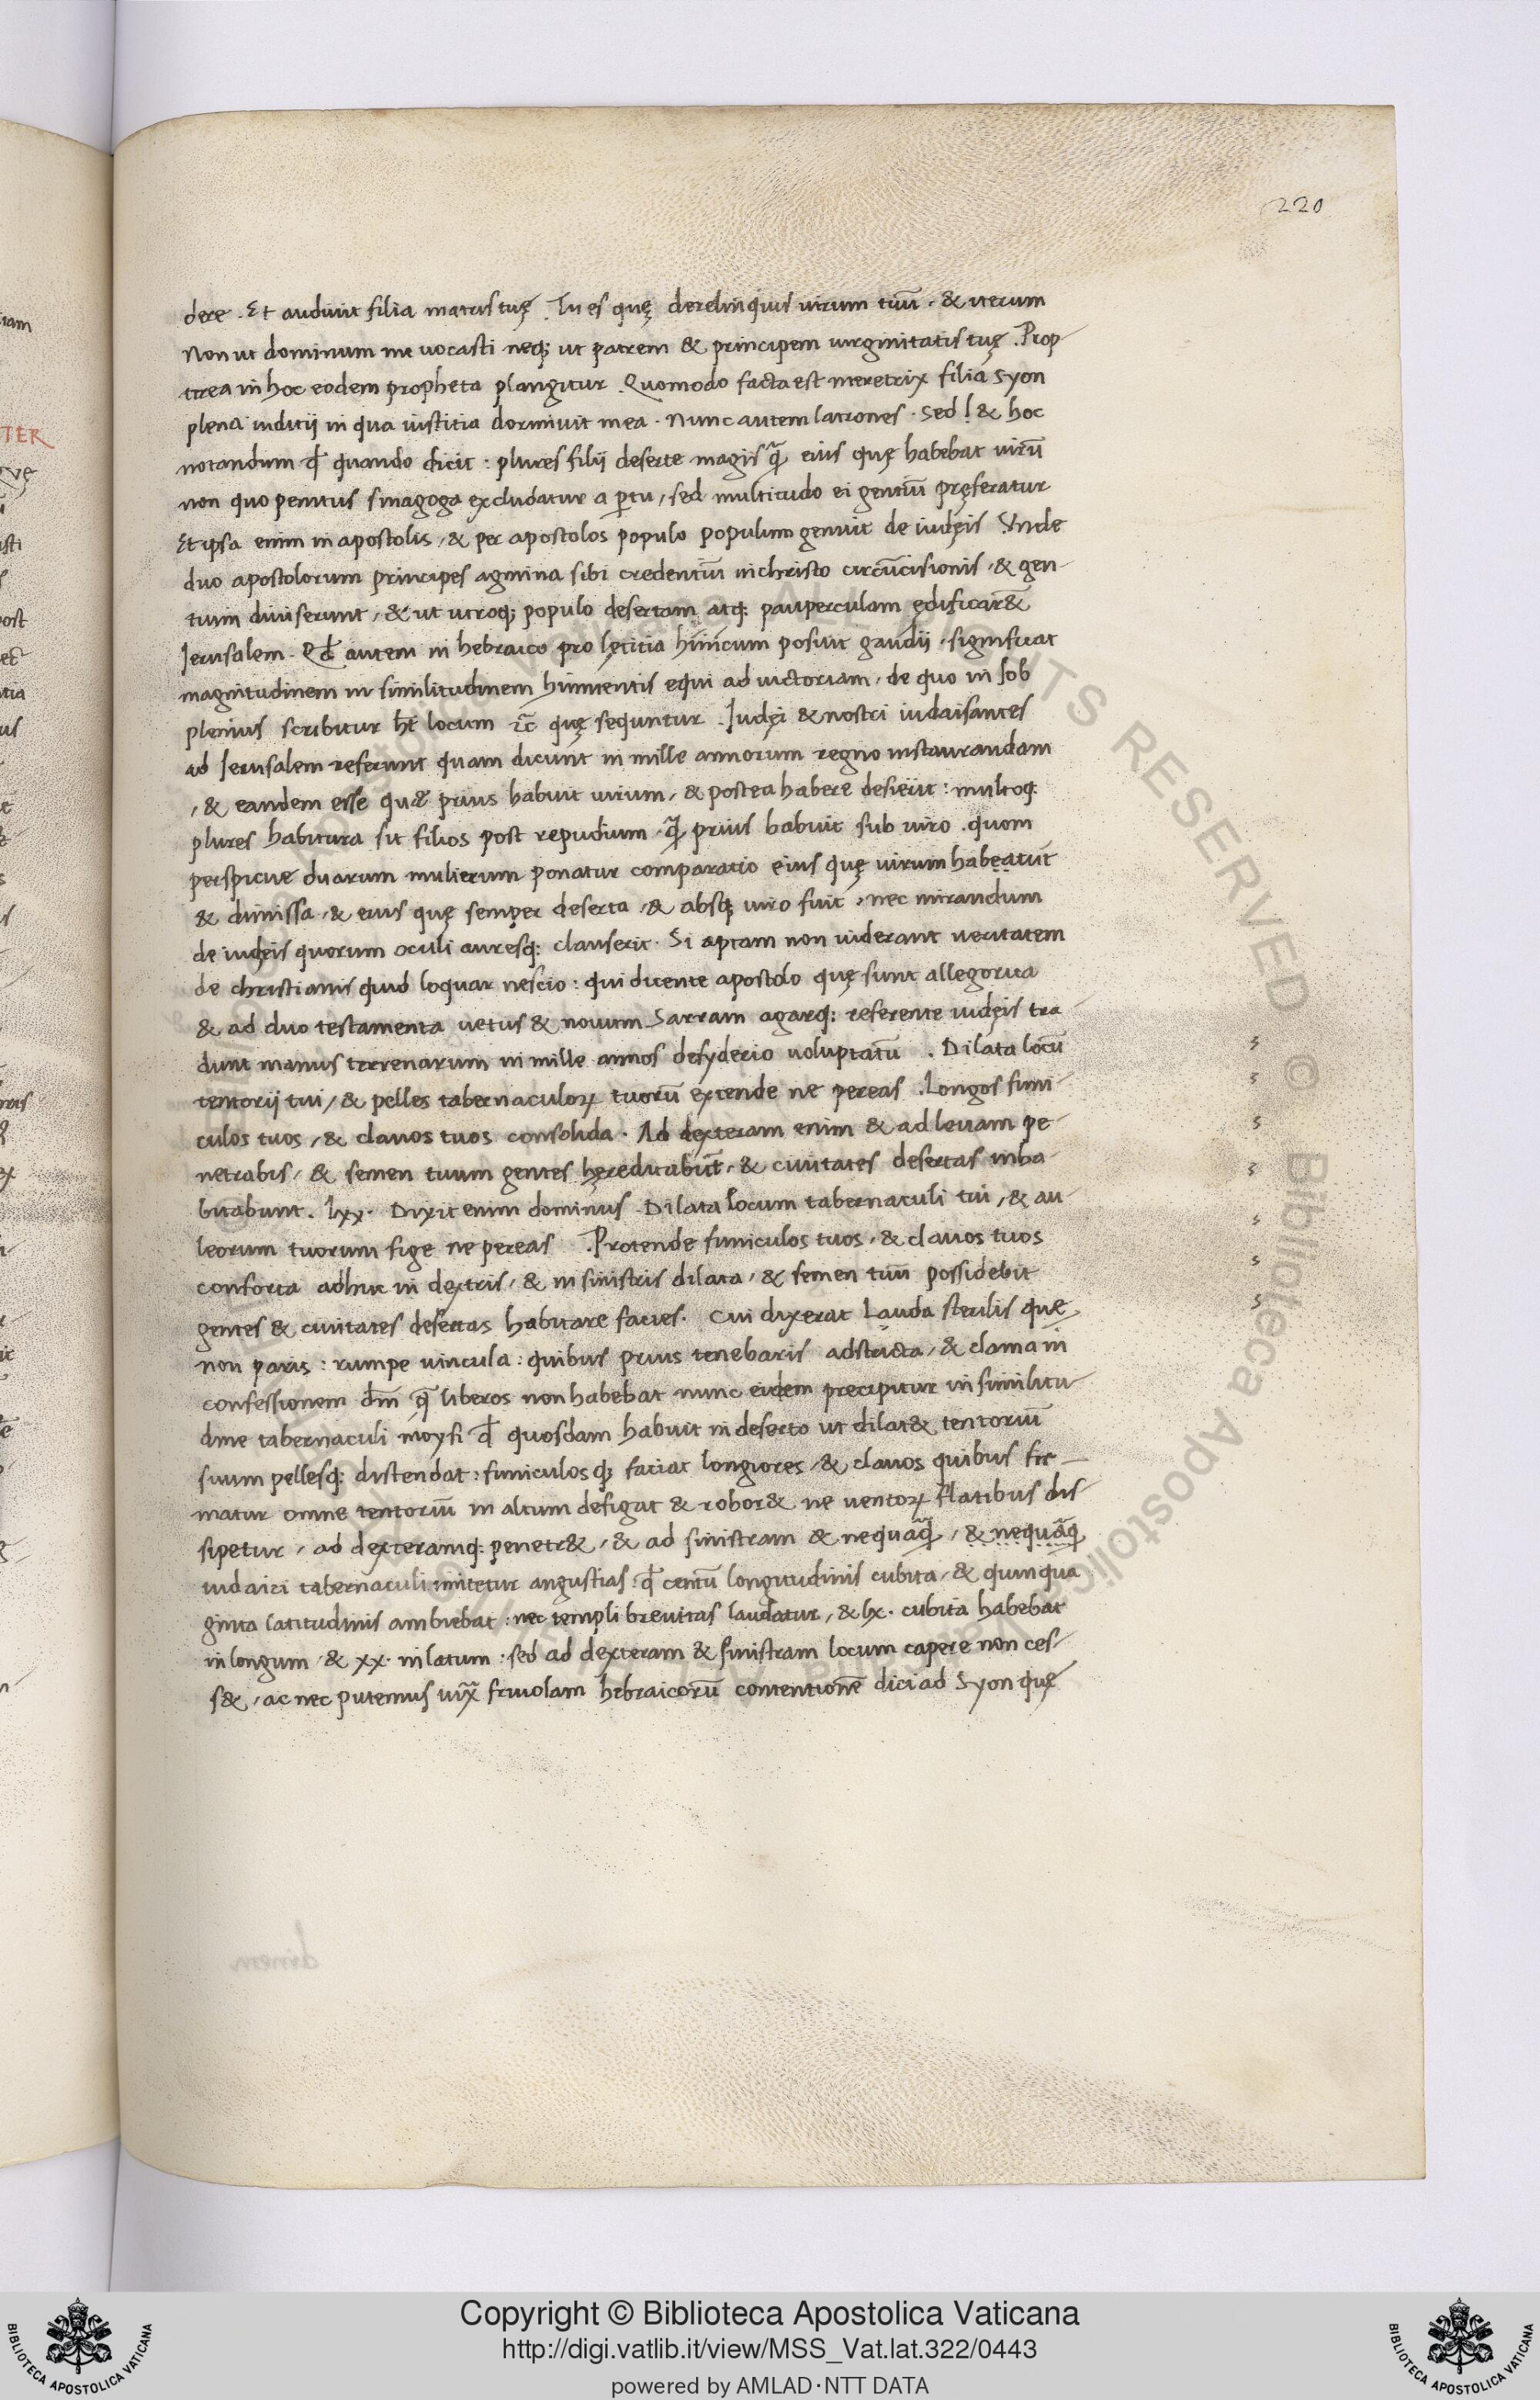 220
dere. Et audiuit filia matris tuę. Tu es quę derelinquis uirum tuū. & uterum
Non ut dominum me uocasti neq; ut patrem & principem uirginitatis tuę. Prop
terea in hoc eodem propheta plangitur. Quomodo facta est meretrix filia syon
plena iuditij in qua iustitia dormiuit mea. Nunc autem latrones. Sed & hoc
notandum ꝙ quando dicit: plures filij deserte magis q̃ eius quę habebat uirũ
non quo penitus sinagoga excludatur a ptu, sed multitudo ei gentiũ pręferatur
Et ipsa enim in apostolis, & per apostolos populo populum genuit de iudęis Vnde
duo apostolorum principes agmina sibi credentiũ in christo circũcisionis, & gen
tium diuiserunt, & ut utroq; populo desertam atq; pauperculam ędificar&
Ierusalem. Qđ autem in hebraico pro lętitia hinnicum posuit gaudij, significat
magnitudinem in similitudinem hinnientis equi ad uictoriam, de quo in Iob
plenius scribitur ht locum quę sequntur. Iudęi & nostri iudaisantes
ad Ierusalem referunt quam dicunt in mille annorum regno instaurandam
, & eandem esse quæ prius habuit uirum, & postea habere desierit: multoq;
plures habitura sit filios post repudium q̃ prius habuit sub uiro. quom
perspicue duarum mulierum ponatur comparatio eius quę uirum habeatūt
& dimissa, & eius quę semper deserta, & absq; uiro fuit, nec mirandum
de iudęis quorum oculi auresq; clauserit. Si aptam non uiderant ueritatem
de christianis quid loquar nescio: qui dicente apostolo quę sunt allegorica
& ad duo testamenta uetus & nouum Sarram agarq; referente iudęis tra
dunt manus terrenarum in mille annos desyderio uoluptatũ. Dilata locũ
tentorij tui, & pelles tabernaculoꝝ tuorũ extende ne pereas. Longos funi
culos tuos, & clauos tuos consolida. Ad dexteram enim & ad leuam pe
netrabis, & semen tuum gentes hęreditabūt, & ciuitates desertas inha
bitabunt. lxx. Dixit enim dominus Dilata locum tabernaculi tui, & au
leorum tuorum fige ne pereas. Protende funiculos tuos, & clauos tuos
conforta adhuc in dextris, & in sinistris dilata, & semen tuū possidebit
gentes & ciuitates desertas habitare facies. Cui dixerat Lauda sterilis quę
non paris: rumpe uincula: quibus prius tenebaris adstricta, & clama in
confessionem dm̃ q̃ liberos non habebat nunc eidem precipitur in similitu
dine tabernaculi moysi ꝙ quosdam habuit in deserto ut dilat& tentoriũ
suum pellesq; distendat: funiculosq; faciat longiores, & clauos quibus fir
matur omne tentoriũ in altum defigat & robor& ne uentoꝝ flatibus dis
sipetur, ad dexteramq; penetr&, & ad sinistram & nequãq̃, & nequãq̃
iudaici tabernaculi imitetur angustias: ꝙ centũ longitudinis cubita, & quinqua
ginta latitudinis ambiebat: nec templi breuitas laudatur, & lx. cubita habebat
in longum & xx. in latum: sed ad dexteram & sinistram locum capere non ces
s&, ac nec putemus iuxͣ friuolam hebraicorũ contentionẽ dici ad Syon quę
Copyright © Biblioteca Apostolica Vaticana
http://digi.vatlib.it/view/MSS_Vat.lat.322/0443
powered by AMLAD·NTT DATA